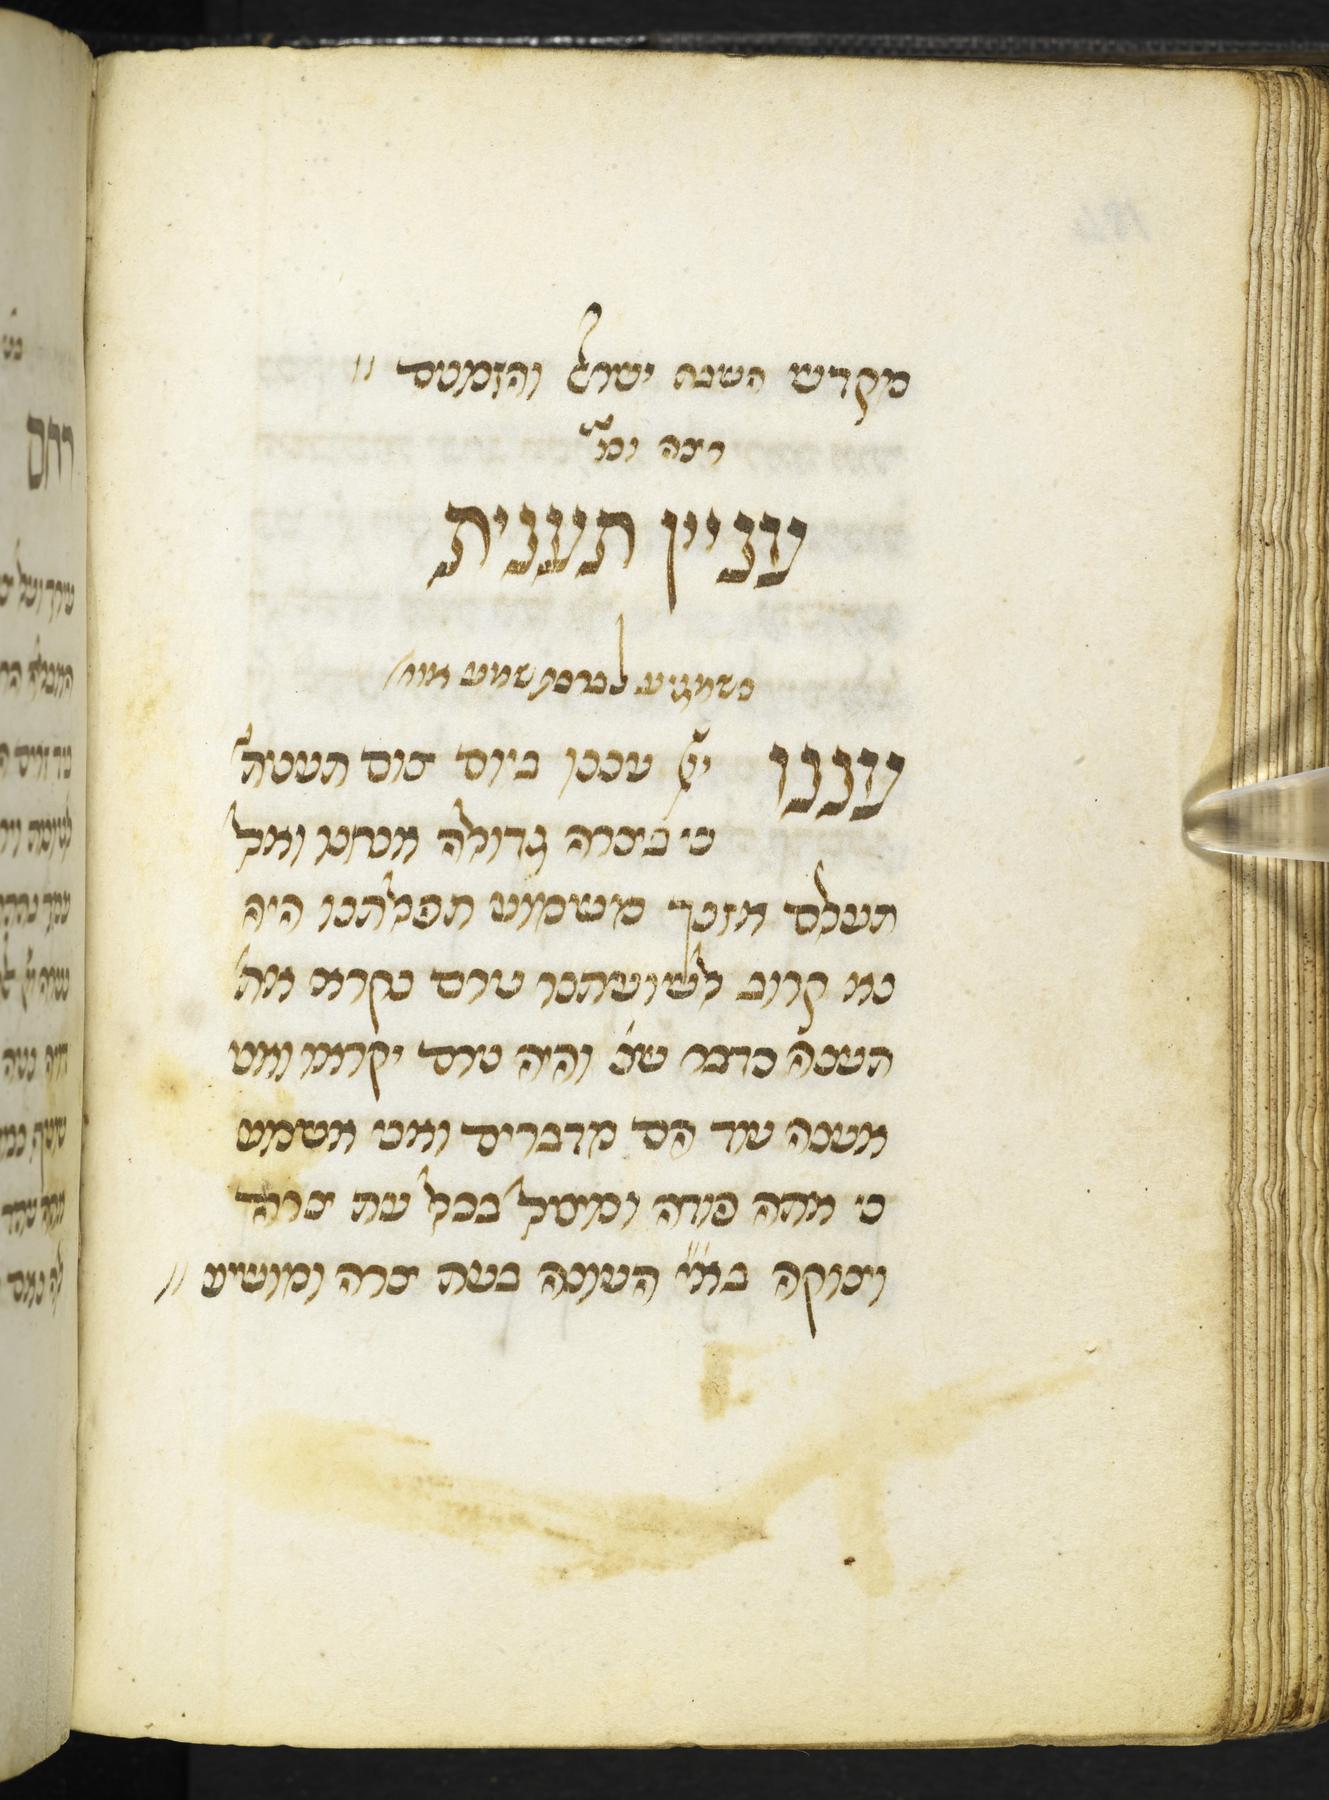 מקדש השבת ישרל והזמנים //
רצה ומ'
ענין תענית
כשמגיע לברכת שמע אומ'
עננו יי' עננו ביום צום תענית'
כי בצרה גדולה אנחנו ואל
תעלם אזנך משמוע תפלתנו היה
נא קרוב לשועתנו טרם נקרא את'
תענה כדבר שנ' והיה טרם יקראו ואני
אענה עוד הם מדברים ואני אשמע
כי אתה פודה ומציל בכל עת צרה
וצוקה בא"י העונה בעת צרה ומושיע //